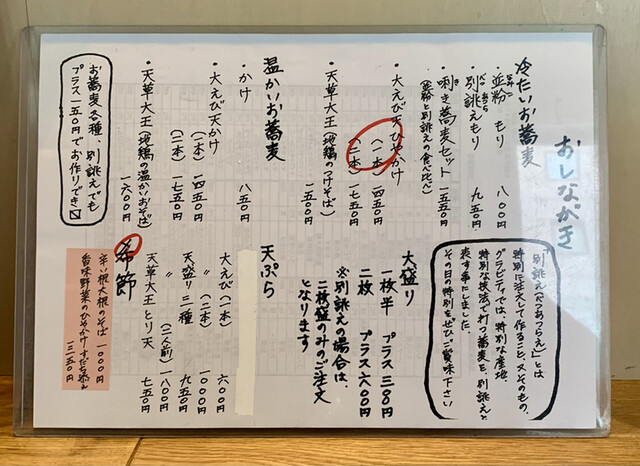 おしながき
冷たいお蕎麦
・並粉 もり 八〇〇円
・別誂えもり 九五〇円
べつあつら
・唎き蕎麦セット 一五五〇円
き
(並粉と別誂えの食べ比べ)
・大えび天ひやかけ
(一本) 一四五〇円
(二本) 一七五〇円
・天草大王(地鶏のつけそば)
一五五〇円
温かいお蕎麦
・かけ 八五〇円
・大えび天かけ
(一本) 一四五〇円
(二本) 一七五〇円
・天草大王(地鶏の温かいおそば)
一六〇〇円
お蕎麦各種、別誂えでも
プラス一五〇円でお作りでき〼
「別誂え(べつあつらえ)」とは
特別に注文して作ること。又そのもの。
グラビティでは、特別な産地、
特別な技法で打つ蕎麦を、別誂えと
表す事にしました。
その日の特別をぜひご賞味下さい
大盛り
一枚半 プラス三〇〇円
二枚 プラス六〇〇円
※別誂えの場合は、
二枚盛のみのご注文
となります
天ぷら
大えび(一本) 六〇〇円
〃(二本) 一〇〇〇円
天盛り三種 九五〇円
〃(二人前) 一八〇〇円
天草大王とり天 七五〇円
季節
辛い根大根のそば 一〇〇〇円
香味野菜のひやかけ すだち添え
一三五〇円